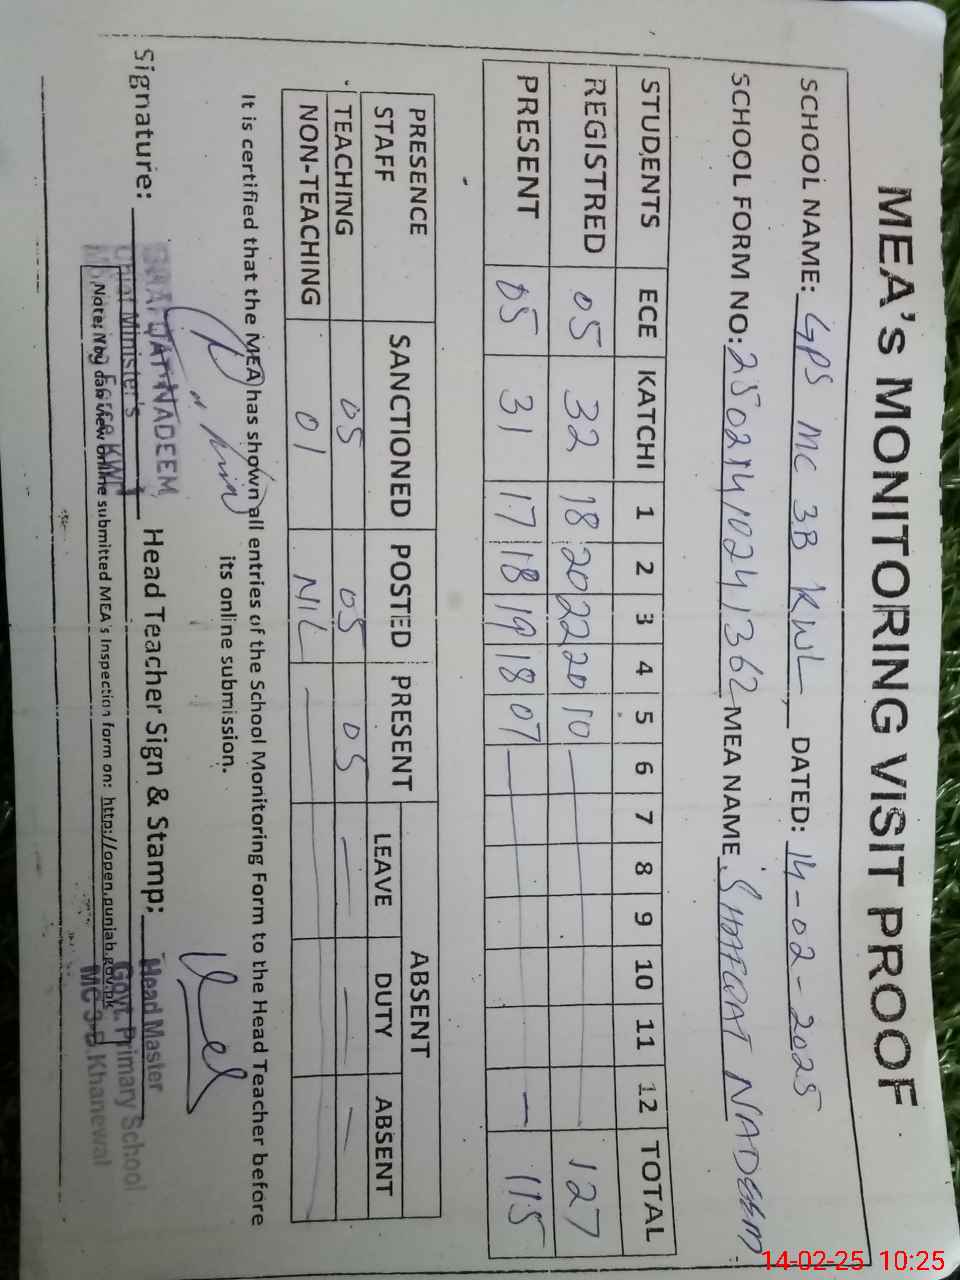 MEA's MONITORING VISIT PROOF
SCHOOL NAME: GPS MC 3B KWL, DATED: 14-02-2025
SCHOOL FORM NO: 25021410241362 MEA NAME SHAFQAT NADEEM
STUDENTS ECE KATCHI 1 2 3 4 5 6 7 8 9 10 11 12 TOTAL
REGISTRED 05 32 18 20 22 20 10 — 127
PRESENT 05 31 17 18 19 18 07 — — 115
PRESENCE STAFF SANCTIONED POSTED PRESENT ABSENT
LEAVE DUTY ABSENT
TEACHING 05 05 05 — — —
NON-TEACHING 01 NIL —
It is certified that the MEA has shown all entries of the School Monitoring Form to the Head Teacher before
its online submission.
Signature: Head Teacher Sign & Stamp:
SHAFQAT NADEEM
Chief Minister's
Force KWL
Head Master
Govt. Primary School
MC 3-B Khanewal
Note: online submitted MEA's Inspection form on: http://open.punjab.gov.pk
14-02-25 10:25